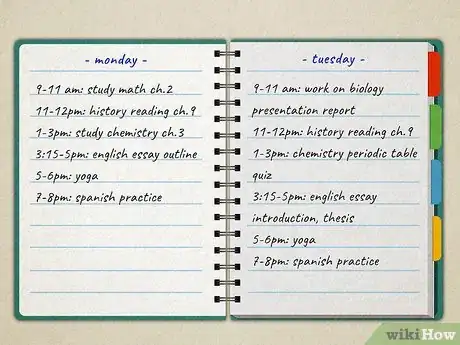 - monday -
9-11 am: study math ch.2
11-12pm: history reading ch.9
1-3pm: study chemistry ch.3
3:15-5pm: english essay outline
5-6pm: yoga
7-8pm: spanish practice
- tuesday -
9-11 am: work on biology
presentation report
11-12pm: history reading ch.9
1-3pm: chemistry periodic table
quiz
3:15-5pm: english essay
introduction, thesis
5-6pm: yoga
7-8pm: spanish practice
wikiHow